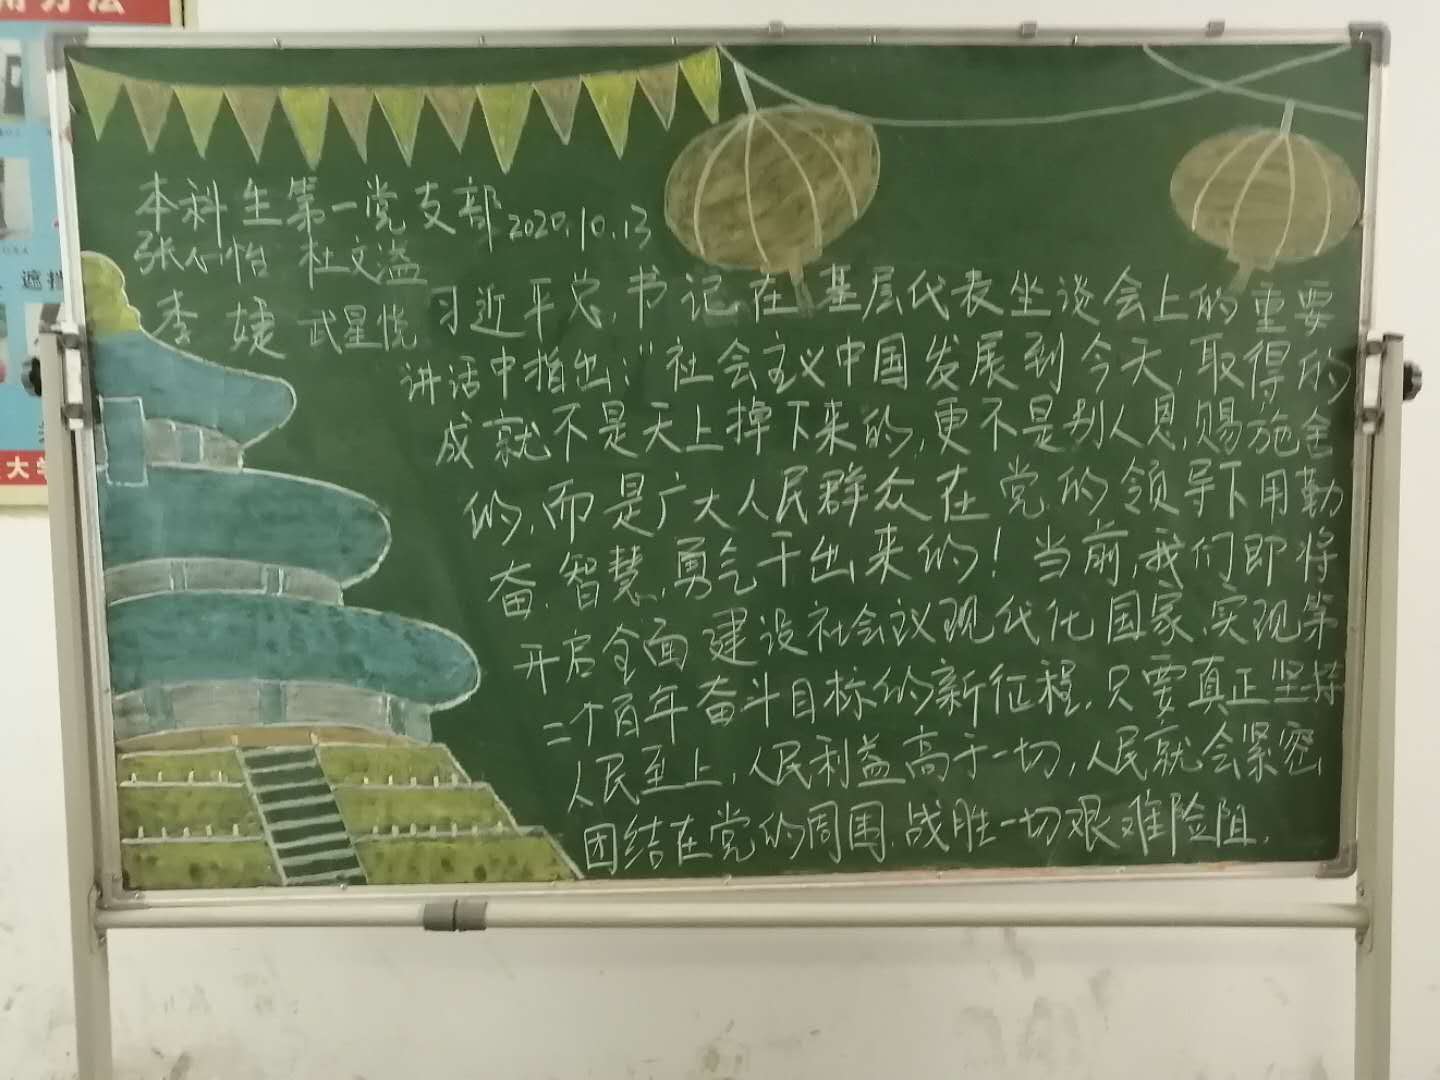 用方法
遮挡
大学
本科生第一党支部 2020.10.13
张心怡 杜文溢
李婕 武星悦
习近平总书记在基层代表坐谈会上的重要
讲话中指出:“社会主义中国发展到今天,取得的
成就不是天上掉下来的,更不是别人恩赐施舍
的,而是广大人民群众在党的领导下用勤
奋、智慧、勇气干出来的!当前,我们即将
开启全面建设社会议现代化国家、实现第
二个百年奋斗目标的新征程,只要真正坚持
人民至上,人民利益高于一切,人民就会紧密
团结在党的周围,战胜一切艰难险阻.